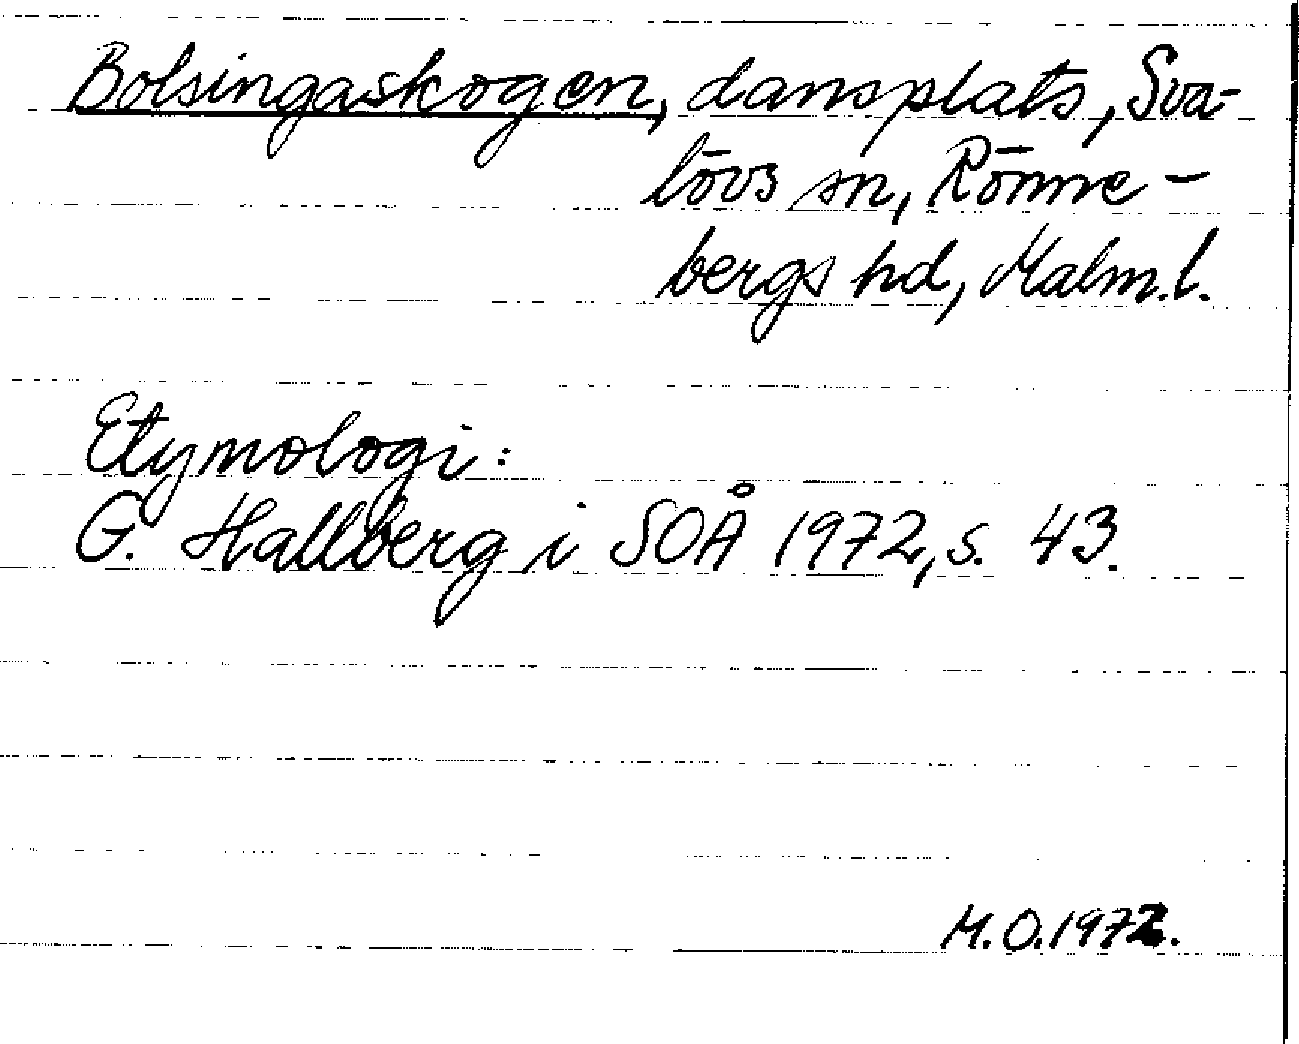 Bolsingaskogen, dansplats, Sva-
lövs sn, Rönne-
bergs hd, Malm.l.
Etymologi:
G. Hallberg i SOÅ 1972, s. 43.
M.O.1972.